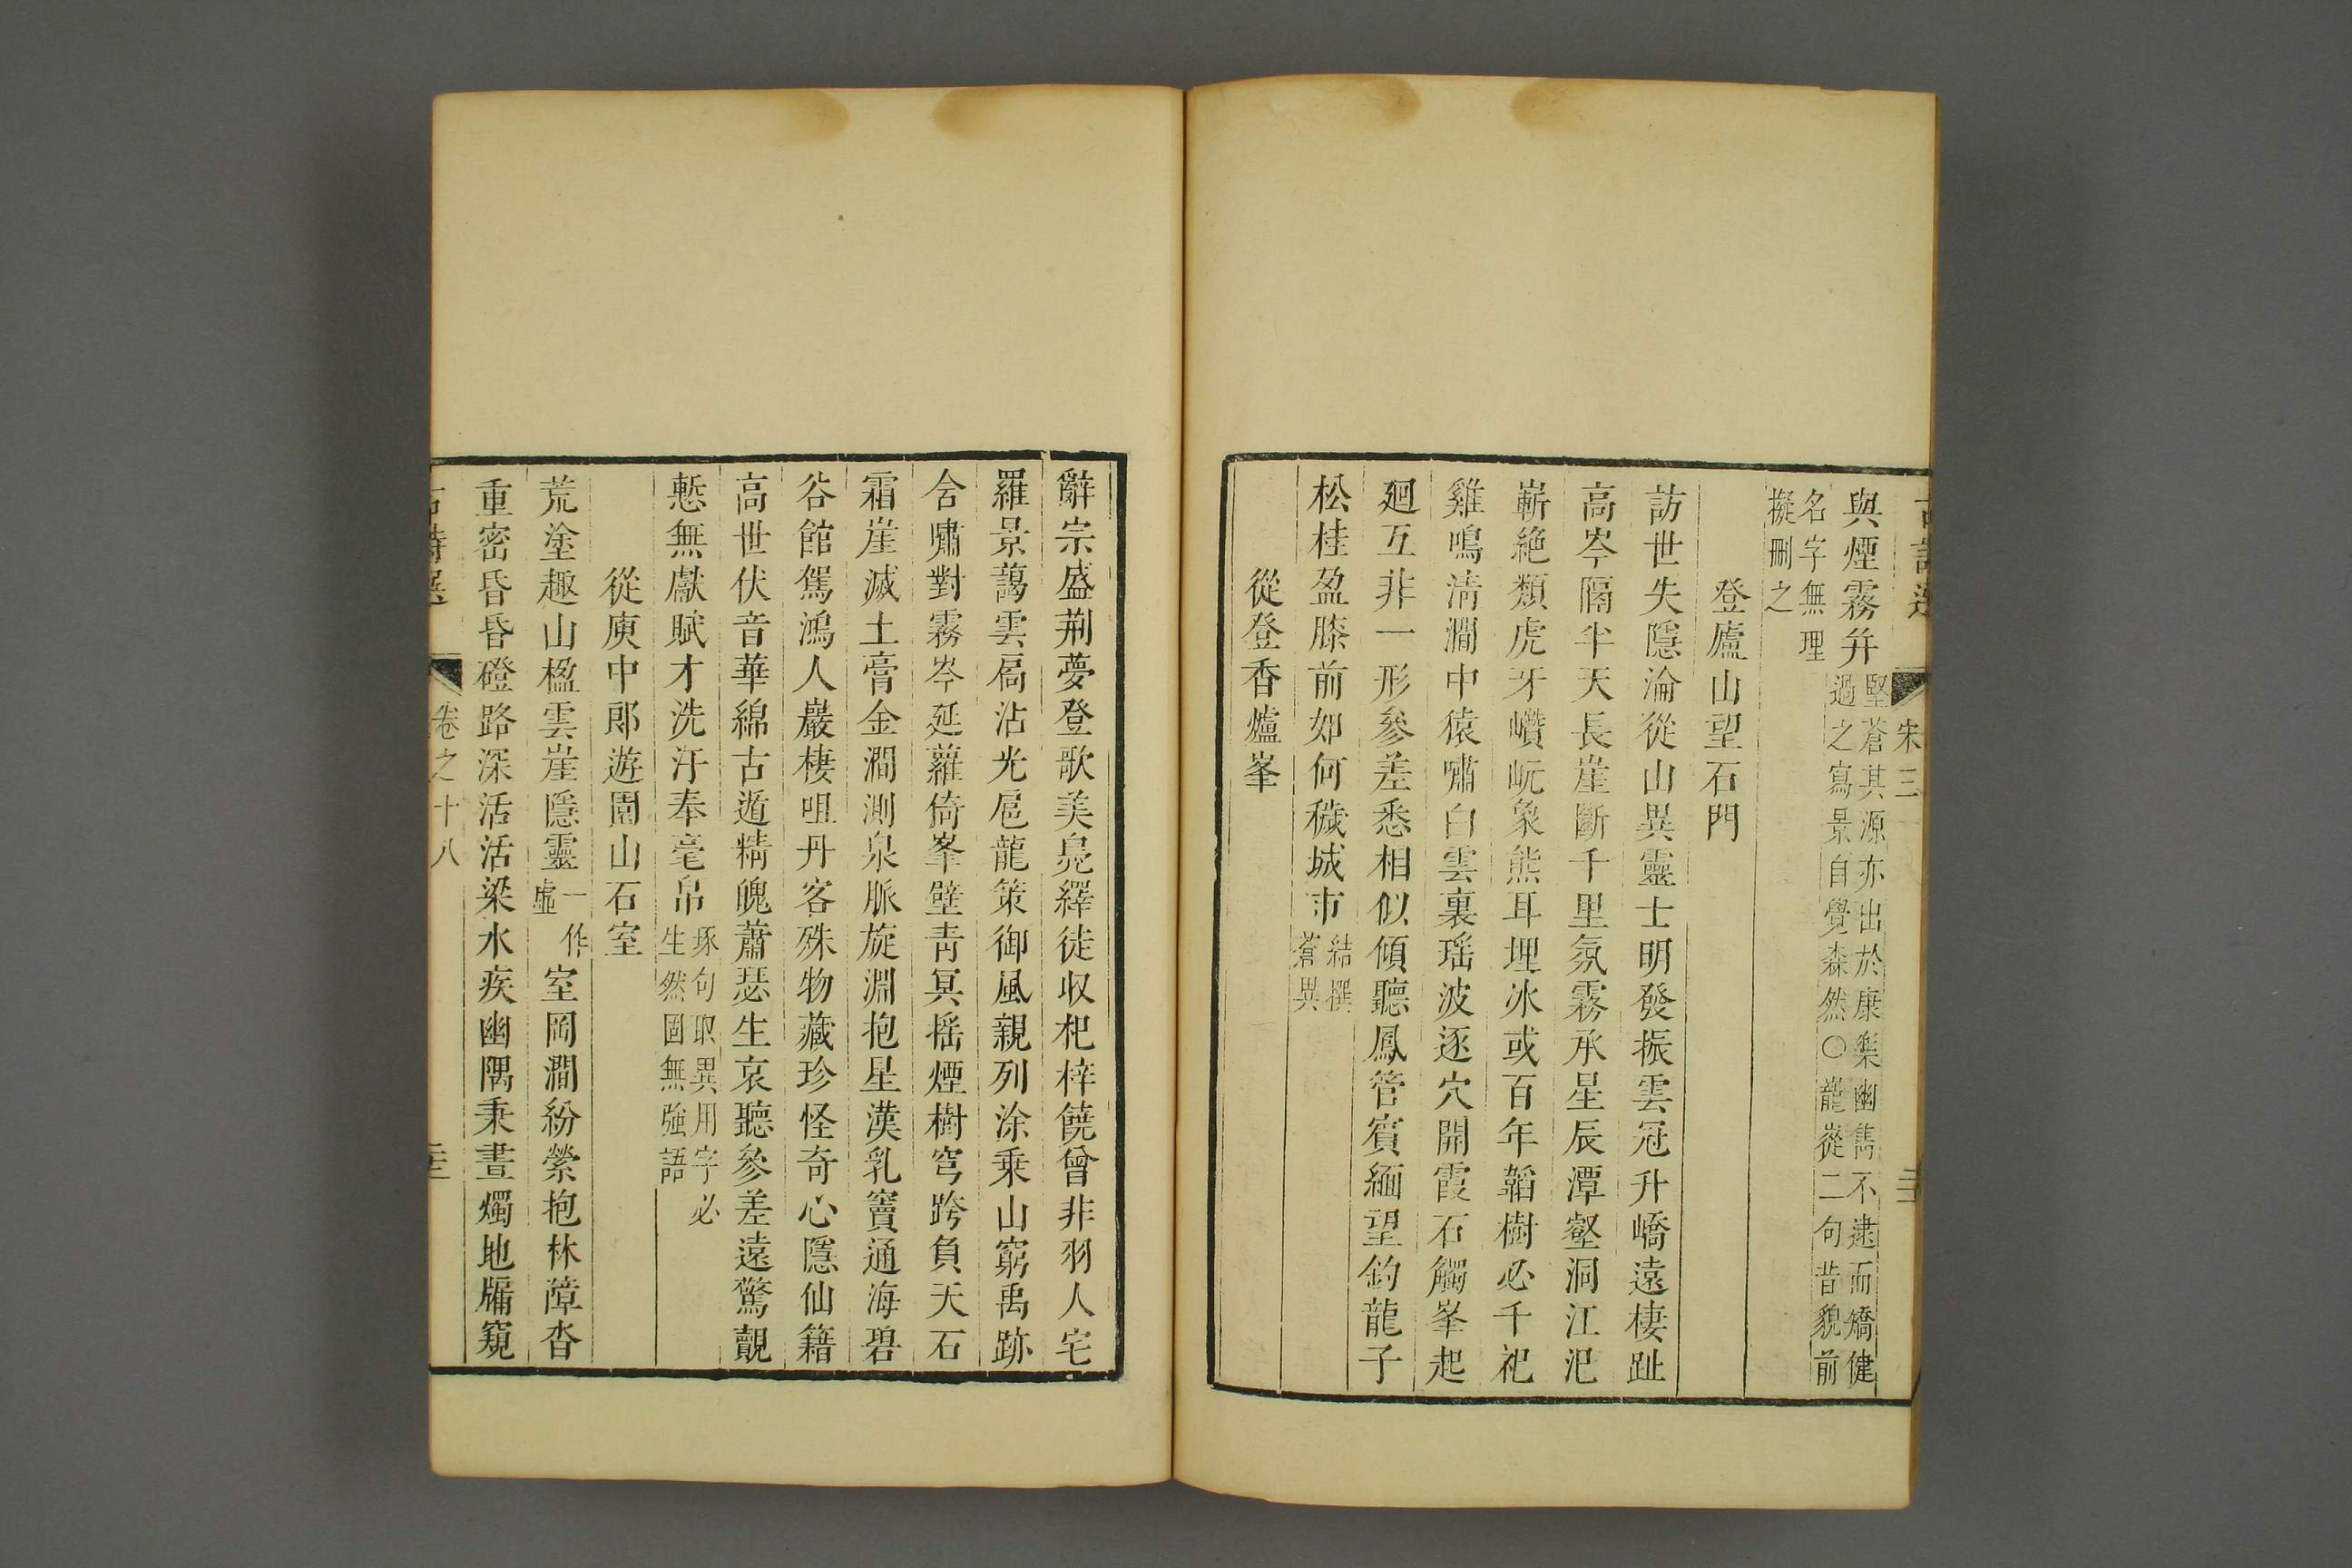 古詩選 宋三
與煙霧并 堅蒼其源亦出於康樂幽雋不逮而矯健
過之寫景自覺森然○龍從二句昔貌前
名字無理
擬刪之
登廬山望石門
訪世失隱淪從山異靈士明發振雲冠升嶠遠棲趾
高岑隔半天長崖斷千里氛霧承星辰潭壑洞江汜
嶄絶類虎牙巑岏象熊耳埋冰或百年韜樹必千祀
雞鳴清澗中猿嘯白雲裏瑶波逐穴開霞石觸峯起
廻互非一形參差悉相似傾聽鳳管賓緬望釣龍子
松桂盈膝前如何穢城市 結撰
蒼異
從登香爐峯
辭宗盛荆夢登歌美鳧繹徒収杞梓饒曾非羽人宅
羅景藹雲扄沾光扈龍策御風親列涂乗山窮禹跡
含嘯對霧岑延蘿倚峯壁青冥摇煙樹穹跨負天石
霜崖滅土膏金澗測泉脈旋淵抱星漢乳竇通海碧
谷館駕鴻人巖棲咀丹客殊物藏珍怪奇心隱仙籍
高世伏音華綿古遁精魄蕭瑟生哀聽參差遠驚覿
慙無獻賦才洗汙奉毫帛 琢句取異用字必
生然固無強語
從庾中郎遊園山石室
荒塗趣山楹雲崖隱靈 一作
虛 室岡澗紛縈抱林障沓
重密昏昏磴路深活活梁水疾幽隅秉晝燭地牖窺
古詩選 卷之十八